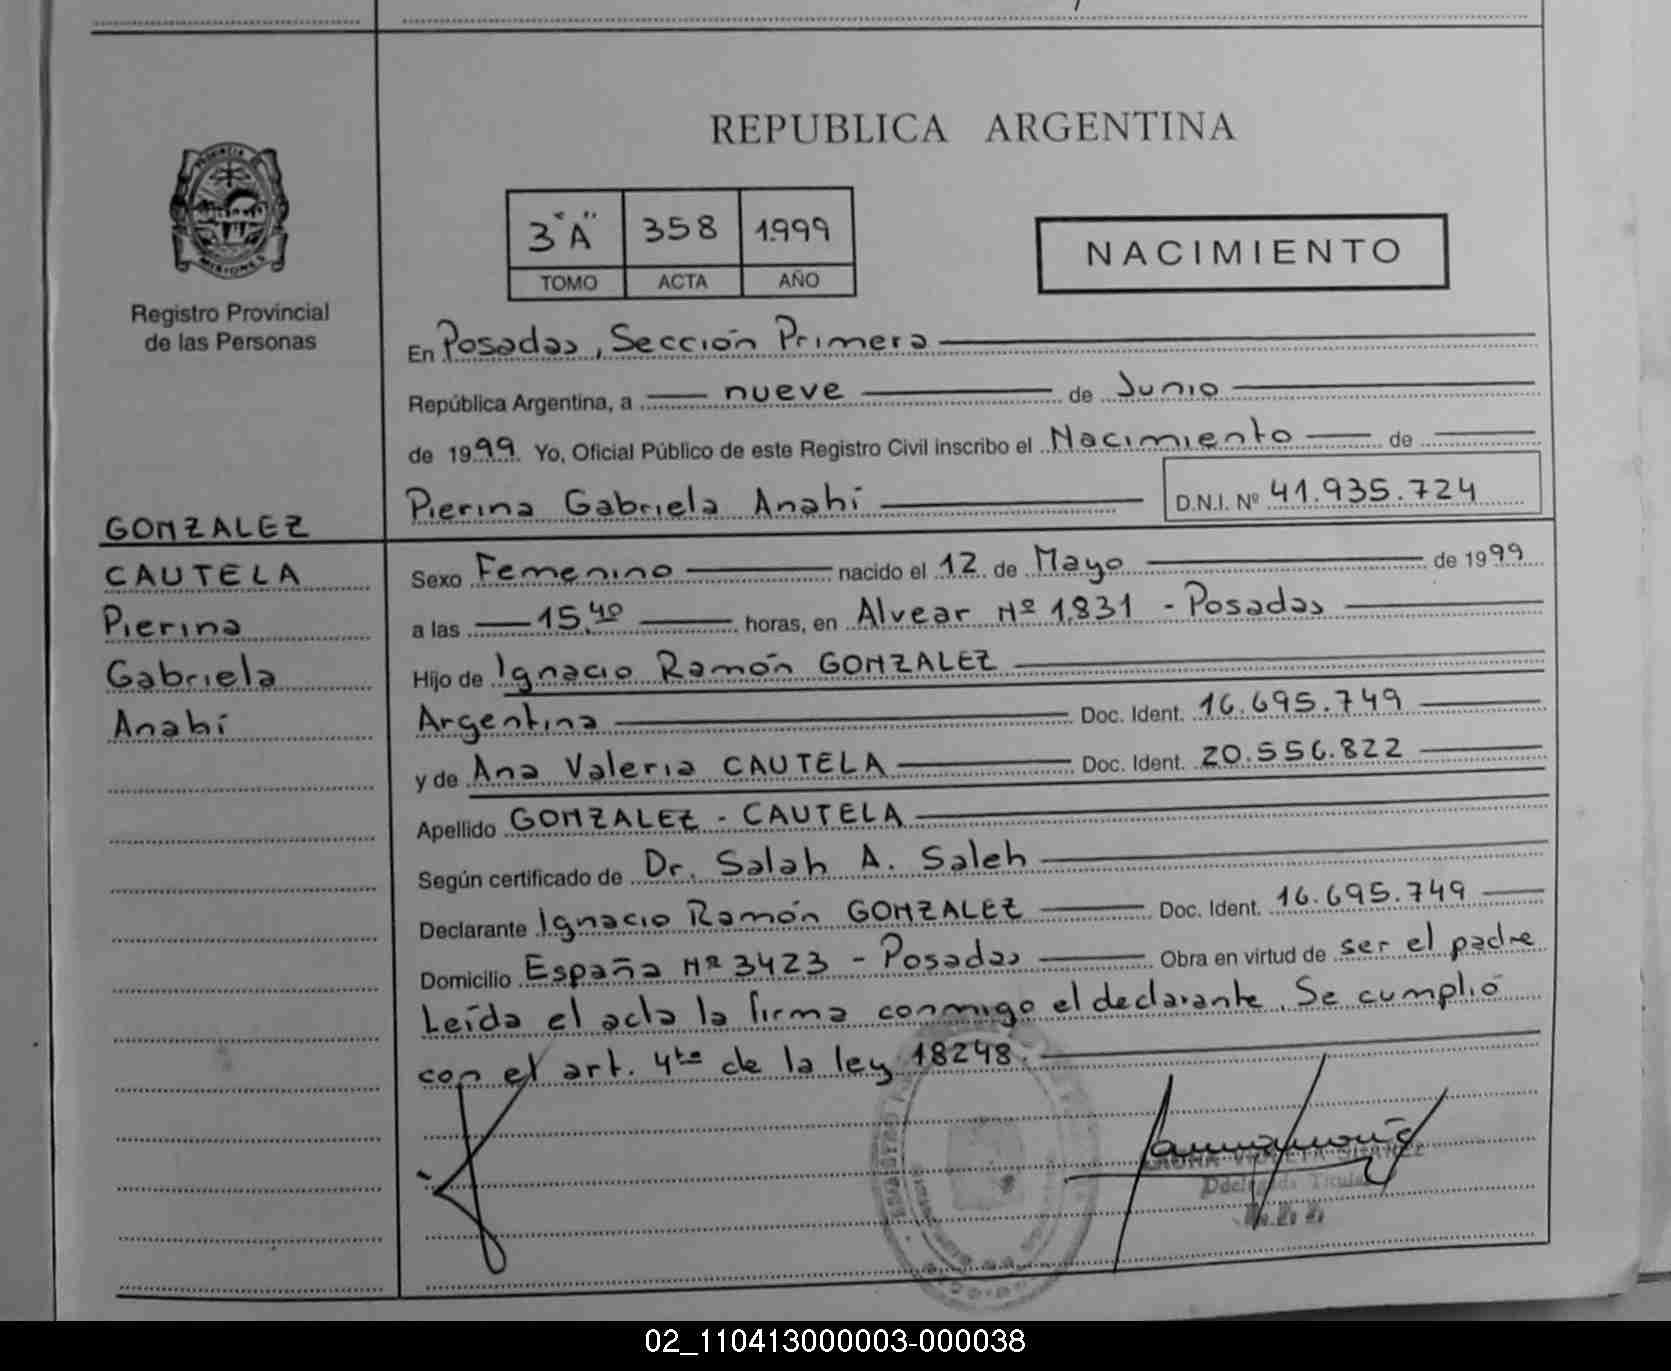 REPUBLICA ARGENTINA
PROVINCIA DE
MISIONES
Registro Provincial
de las Personas
3"A" 358 1999
TOMO ACTA AÑO
NACIMIENTO
En Posadas, Sección Primera
República Argentina, a nueve de Junio
de 1999. Yo, Oficial Público de este Registro Civil inscribo el Nacimiento de
Pierina Gabriela Anahí D.N.I. Nº 41.935.724
GONZALEZ
CAUTELA
Pierina
Gabriela
Anahí
Sexo Femenino nacido el 12 de Mayo de 1999
a las 15,40 horas, en Alvear Nº 1.831 - Posadas
Hijo de Ignacio Ramón GONZALEZ
Argentina Doc. Ident. 16.695.749
y de Ana Valeria CAUTELA Doc. Ident. 20.556.822
Apellido GONZALEZ - CAUTELA
Según certificado de Dr. Salah A. Saleh
Declarante Ignacio Ramón GONZALEZ Doc. Ident. 16.695.749
Domicilio España Nº 3423 - Posadas Obra en virtud de ser el padre
Leída el acta la firma conmigo el declarante. Se cumplió
con el art. 4to de la ley 18248.
Titular
02_110413000003-000038